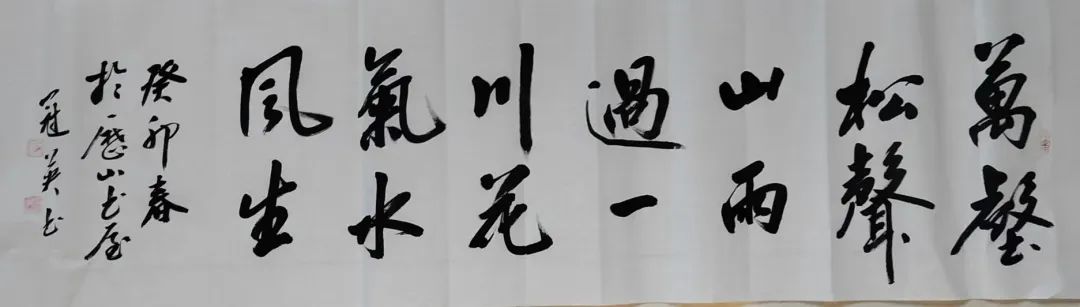 萬壑
松聲
山雨
過一
川花
氣水
風生
癸卯春
於歷山書屋
冠英書